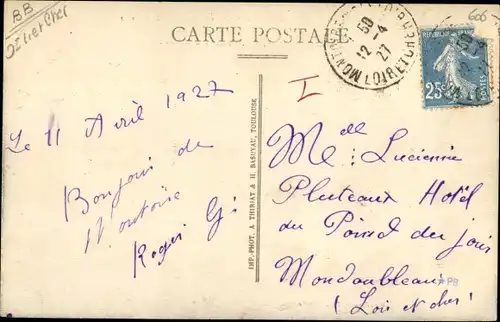 BB
Loir et Cher
CARTE POSTALE
606
50
12 - 4
27
MONTOIRE
REPUBLIQUE
25c
I
Le 11 Avril 1927
Bonjour de
Montoire
Roger G.
IMP.-PHOT. A. THIRIAT & H. BASUYAU, TOULOUSE
Melle Lucienne
Pluteaux Hotel
du Point du jour
Mondoubleau
(Loir et cher)